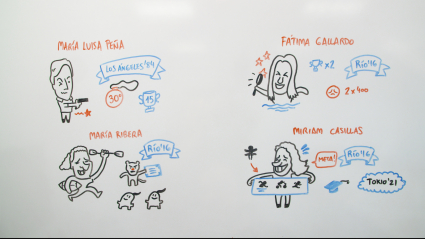 MARÍA LUISA PEÑA
LOS ÁNGELES'84
30º
15
FÁTIMA GALLARDO
x2
RÍO'16
2x400
MARÍA RIBERA
RÍO'16
MIRIAM CASILLAS
META!
RÍO'16
TOKIO'21